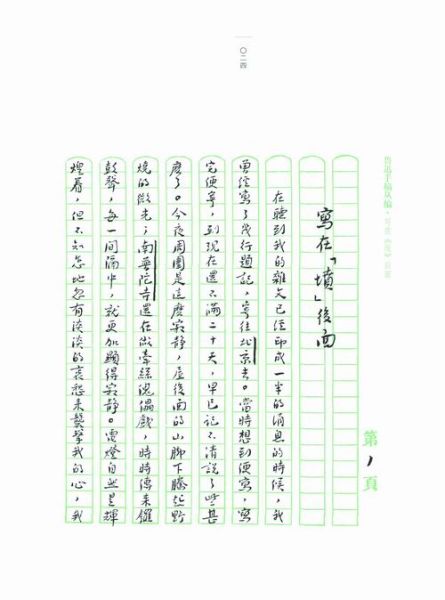 〇二四
鲁迅手稿丛编
第1頁
寫在「墳」後面
在聽到我的雜文已經印成一半的消息的時候，我
曾經寫了幾行題記，寄往北京去。當時想到便寫，寫
完便寄，到現在還不滿二十天，早已記不清說了些甚
麼了。今夜周圍是這麼寂靜，屋後面的山腳下騰起野
燒的微光；南普陀寺還在做牽絲傀儡戲，時時傳來鑼
鼓聲，每一間隔中，就更加顯得寂靜。電燈自然是輝
煌着，但不知怎地忽有淡淡的哀愁來襲擊我的心，我